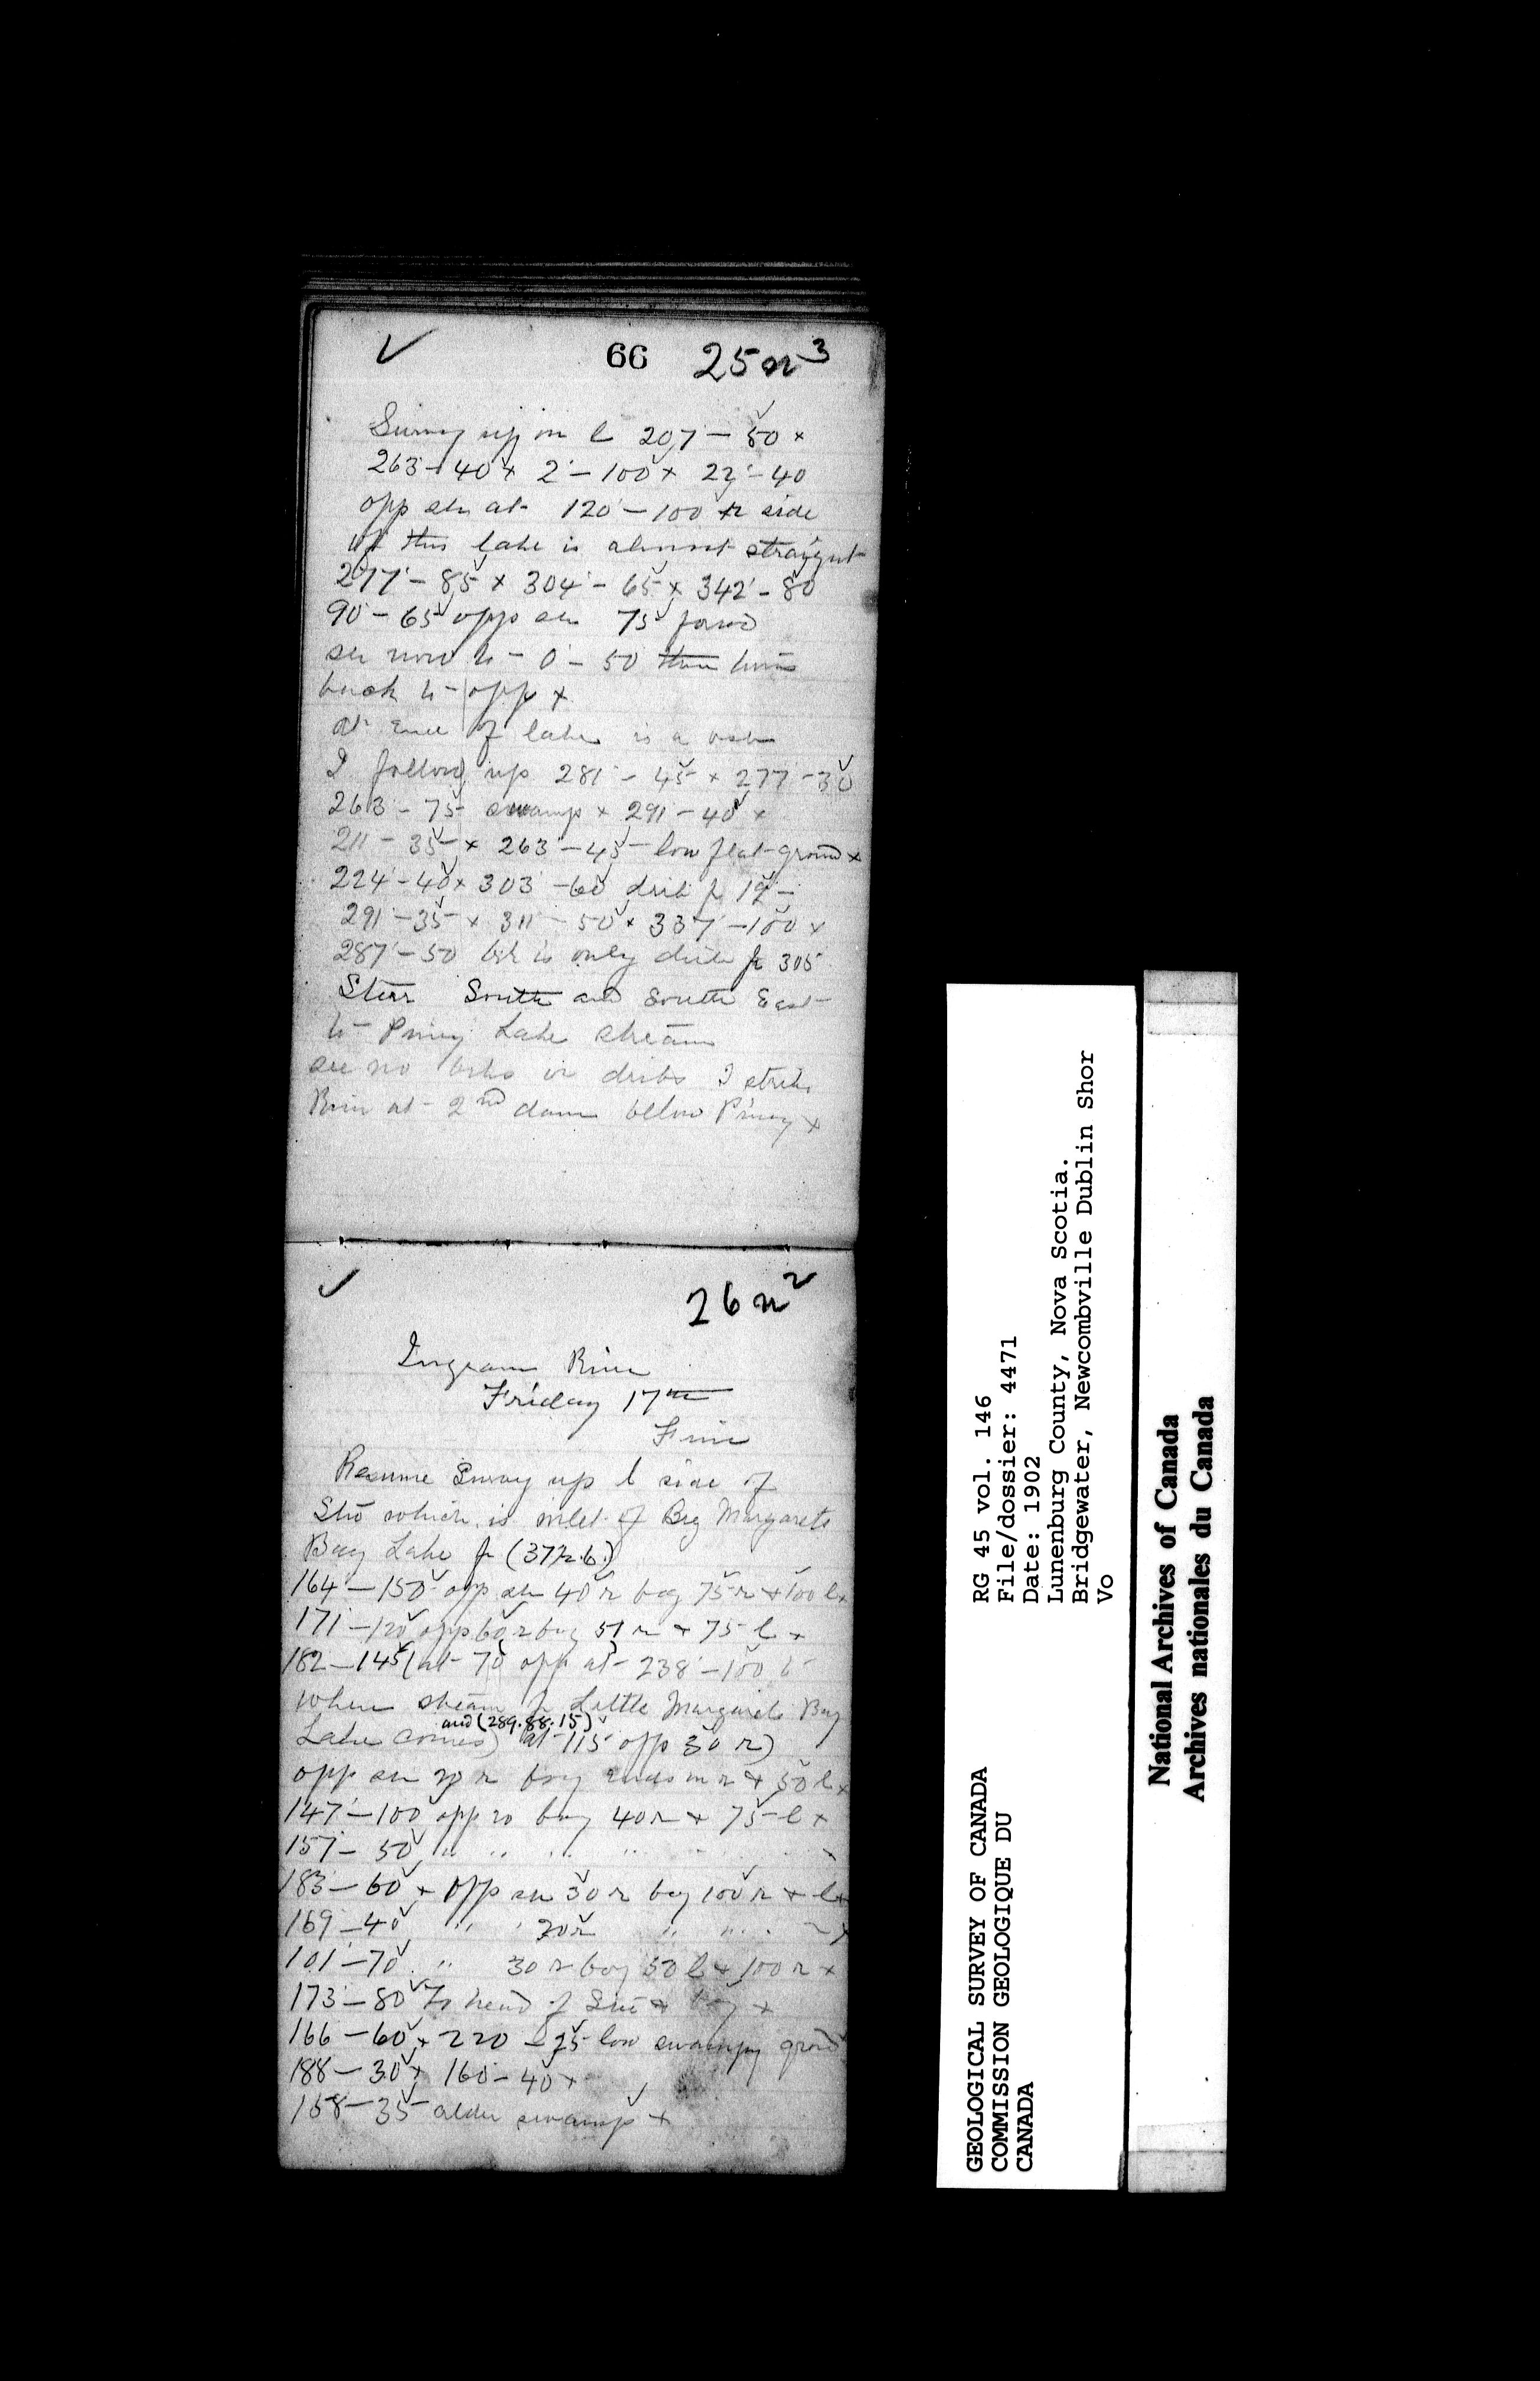 ✓ 66 25n³
Survey up on l 207 – 50 x
263 – 40 x 2 – 100 x 22 – 40
opp sh at 120 – 100 r side
of this lake is almost straight
277 – 85 x 304 – 65 x 342 – 80
90 – 65 opp sh 75
sh now to – 0 – 50 turns
back to opp x
at end of lake is a
I follow up 281 – 45 x 277 – 30
263 – 75 swamp x 291 – 40 x
211 – 35 x 263 – 45 – low flat ground x
224 – 40 x 303 – 60 drib fr 19 –
291 – 35 x 311 – 50 x 337 – 100 x
287 – 50 is only drib fr 305
Steer South and South East
to Piney Lake stream
see no brks or dribs I strike
River at 2nd dam below Piney x
✓ 26n²
Ingram River
Friday 17th
Fine
Resume Survey up l side of
Stw which is inlet of Big Margarets
Bay Lake fr (37r.6.)
164 – 150 opp sh 40 r bog 75 r + 100 l x
171 – 120 opp 60 r bog 51 r + 75 l x
182 – 145 (at 70 opp at 238 – 100 to
where stream fr Little Margarets Bay
and (289.88.15)
Lake comes) at 115 opp 30 r)
opp sh 20 r bog ends on r + 50 l x
147 – 100 opp 20 bog 40 r + 75 l x
157 – 50 " " " "
183 – 60 x opp sh 30 r bog 100 r + l x
169 – 40 " " 20 r " "
101 – 70 " 30 r bog 50 l + 100 r x
173 – 80 to head of Stw + bog x
166 – 60 x 220 – 25 low swampy ground
188 – 30 x 160 – 40 x
158 – 35 alder swamp x
GEOLOGICAL SURVEY OF CANADA
COMMISSION GEOLOGIQUE DU
CANADA
RG 45 vol. 146
File/dossier: 4471
Date: 1902
Lunenburg County, Nova Scotia.
Bridgewater, Newcombville Dublin Shor
Vo
National Archives of Canada
Archives nationales du Canada